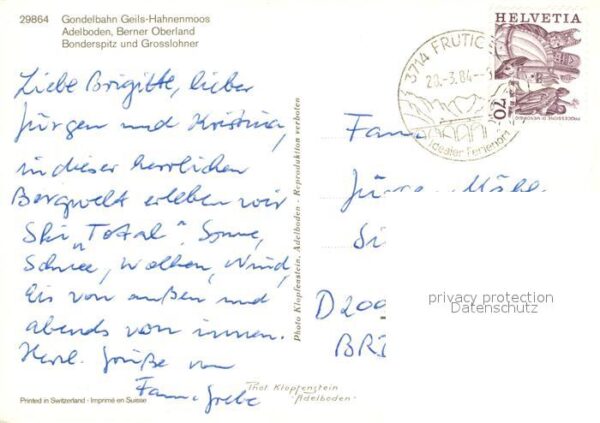 29864 Gondelbahn Geils-Hahnenmoos
Adelboden, Berner Oberland
Bonderspitz und Grosslohner
Liebe Brigitte, lieber
Jürgen und Kristina,
in dieser herrlichen
Bergwelt erleben wir
Ski „Total". Sonne,
Schnee, Wolken, Wind,
Eis von außen und
abends von innen.
Herzl. Grüße von
Fam. Grebe
Printed in Switzerland - Imprimé en Suisse
Photo Klopfenstein, Adelboden - Reproduktion verboten
Phot. Klopfenstein
"Adelboden"
HELVETIA
70
3714 FRUTIG
20.-3.84-
idealer Ferienort
Fam
Jürgen
Si
D 200
BRE
privacy protection
Datenschutz